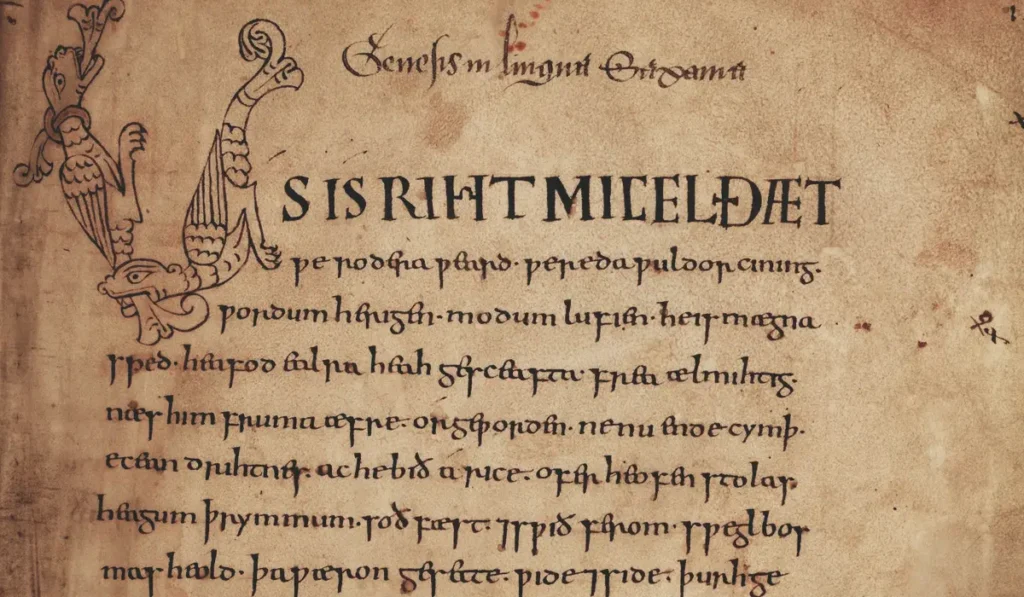 Genesis in lingua Saxania
US IS RIHT MICEL ÐÆT
ƿe rodera ƿeard· ƿereda ƿuldor cining·
ƿordum herigen· modum lufien· heis mægna
sped· heafod ealra heah gesceafta· frea ælmihtig·
næs him fruma æfre· or geƿorden· nenu ende cymþ·
ecean drihtnes· ac hebið a rice· ofer heofen stolas
heagum þrymmum· soð fæst· ⁊sƿið feorm· sƿeglbos
mas heold· þaƿæron gesette· ƿide ⁊side· þurh ge